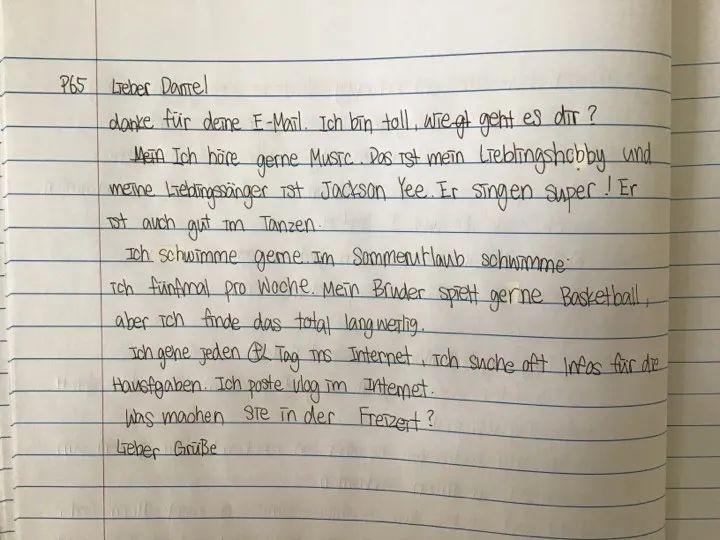 P65 Lieber Daniel
danke für deine E-Mail. Ich bin toll, wie gt geht es dir?
Mein Ich höre gerne Music. Das ist mein Lieblingshobby und
meine Lieblingssänger ist Jackson Yee. Er singen super! Er
ist auch gut im Tanzen.
Ich schwimme gerne. Im Sommerurlaub schwimme
ich fünfmal pro Woche. Mein Bruder spielt gerne Basketball,
aber ich finde das total langweilig.
Ich gehe jeden Tag ins Internet, ich suche oft Infos für die
Hausfgaben. Ich poste vlog im Internet.
Was machen Sie in der Freizeit?
Lieber Grüße